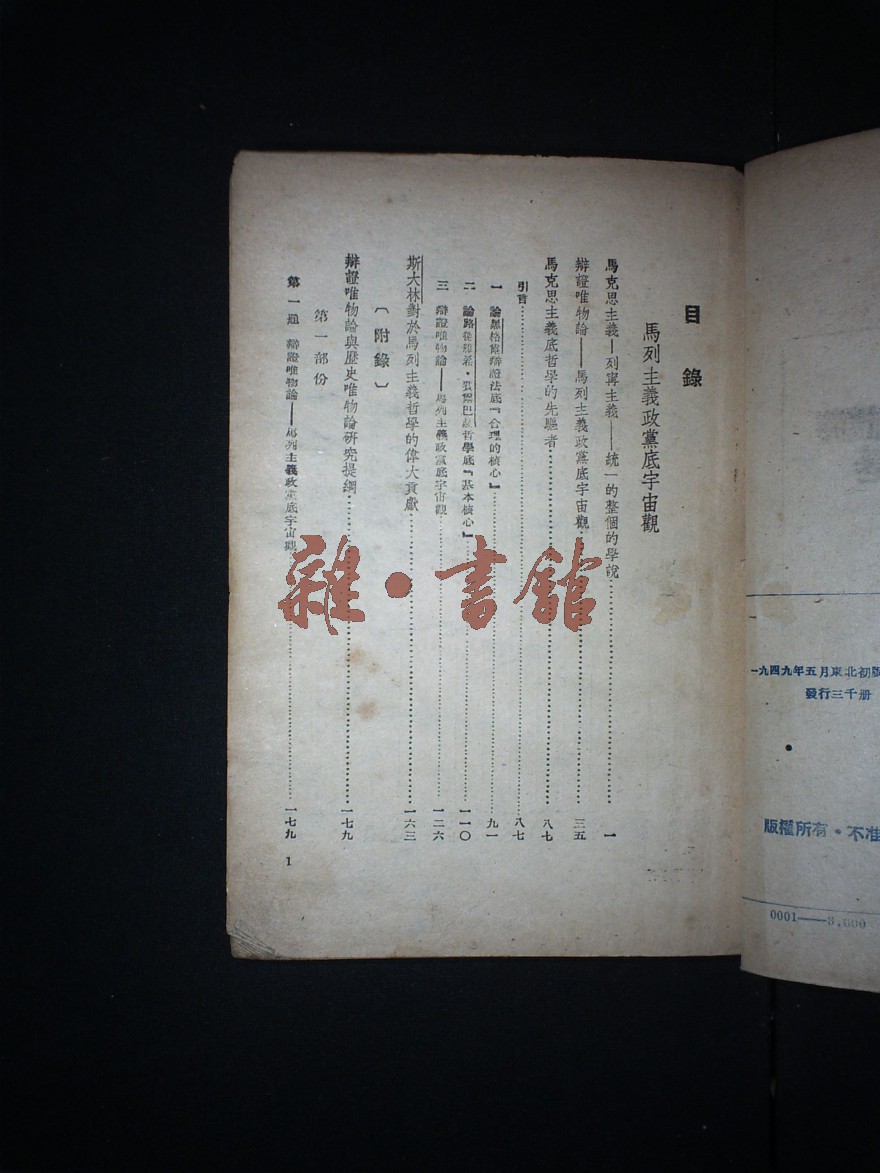 目錄
馬列主義政黨底宇宙觀
馬克思主義—列寧主義——統一的整個的學說……一
辯證唯物論——馬列主義政黨底宇宙觀……三五
馬克思主義底哲學的先驅者……八七
引言……八七
一 論黑格爾辯證法底『合理的核心』……九一
二 論路德維希·費爾巴赫哲學底『基本核心』……一一〇
三 辯證唯物論——馬列主義政黨底宇宙觀……一二六
斯大林對於馬列主義哲學的偉大貢獻……一六三
〔附錄〕
辯證唯物論與歷史唯物論研究提綱……一七九
第一部份
第一題 辯證唯物論——馬列主義政黨底宇宙觀……一七九
1
雜·書館
一九四九年五月東北初版
發行三千册
版權所有·不准
0001——3,000